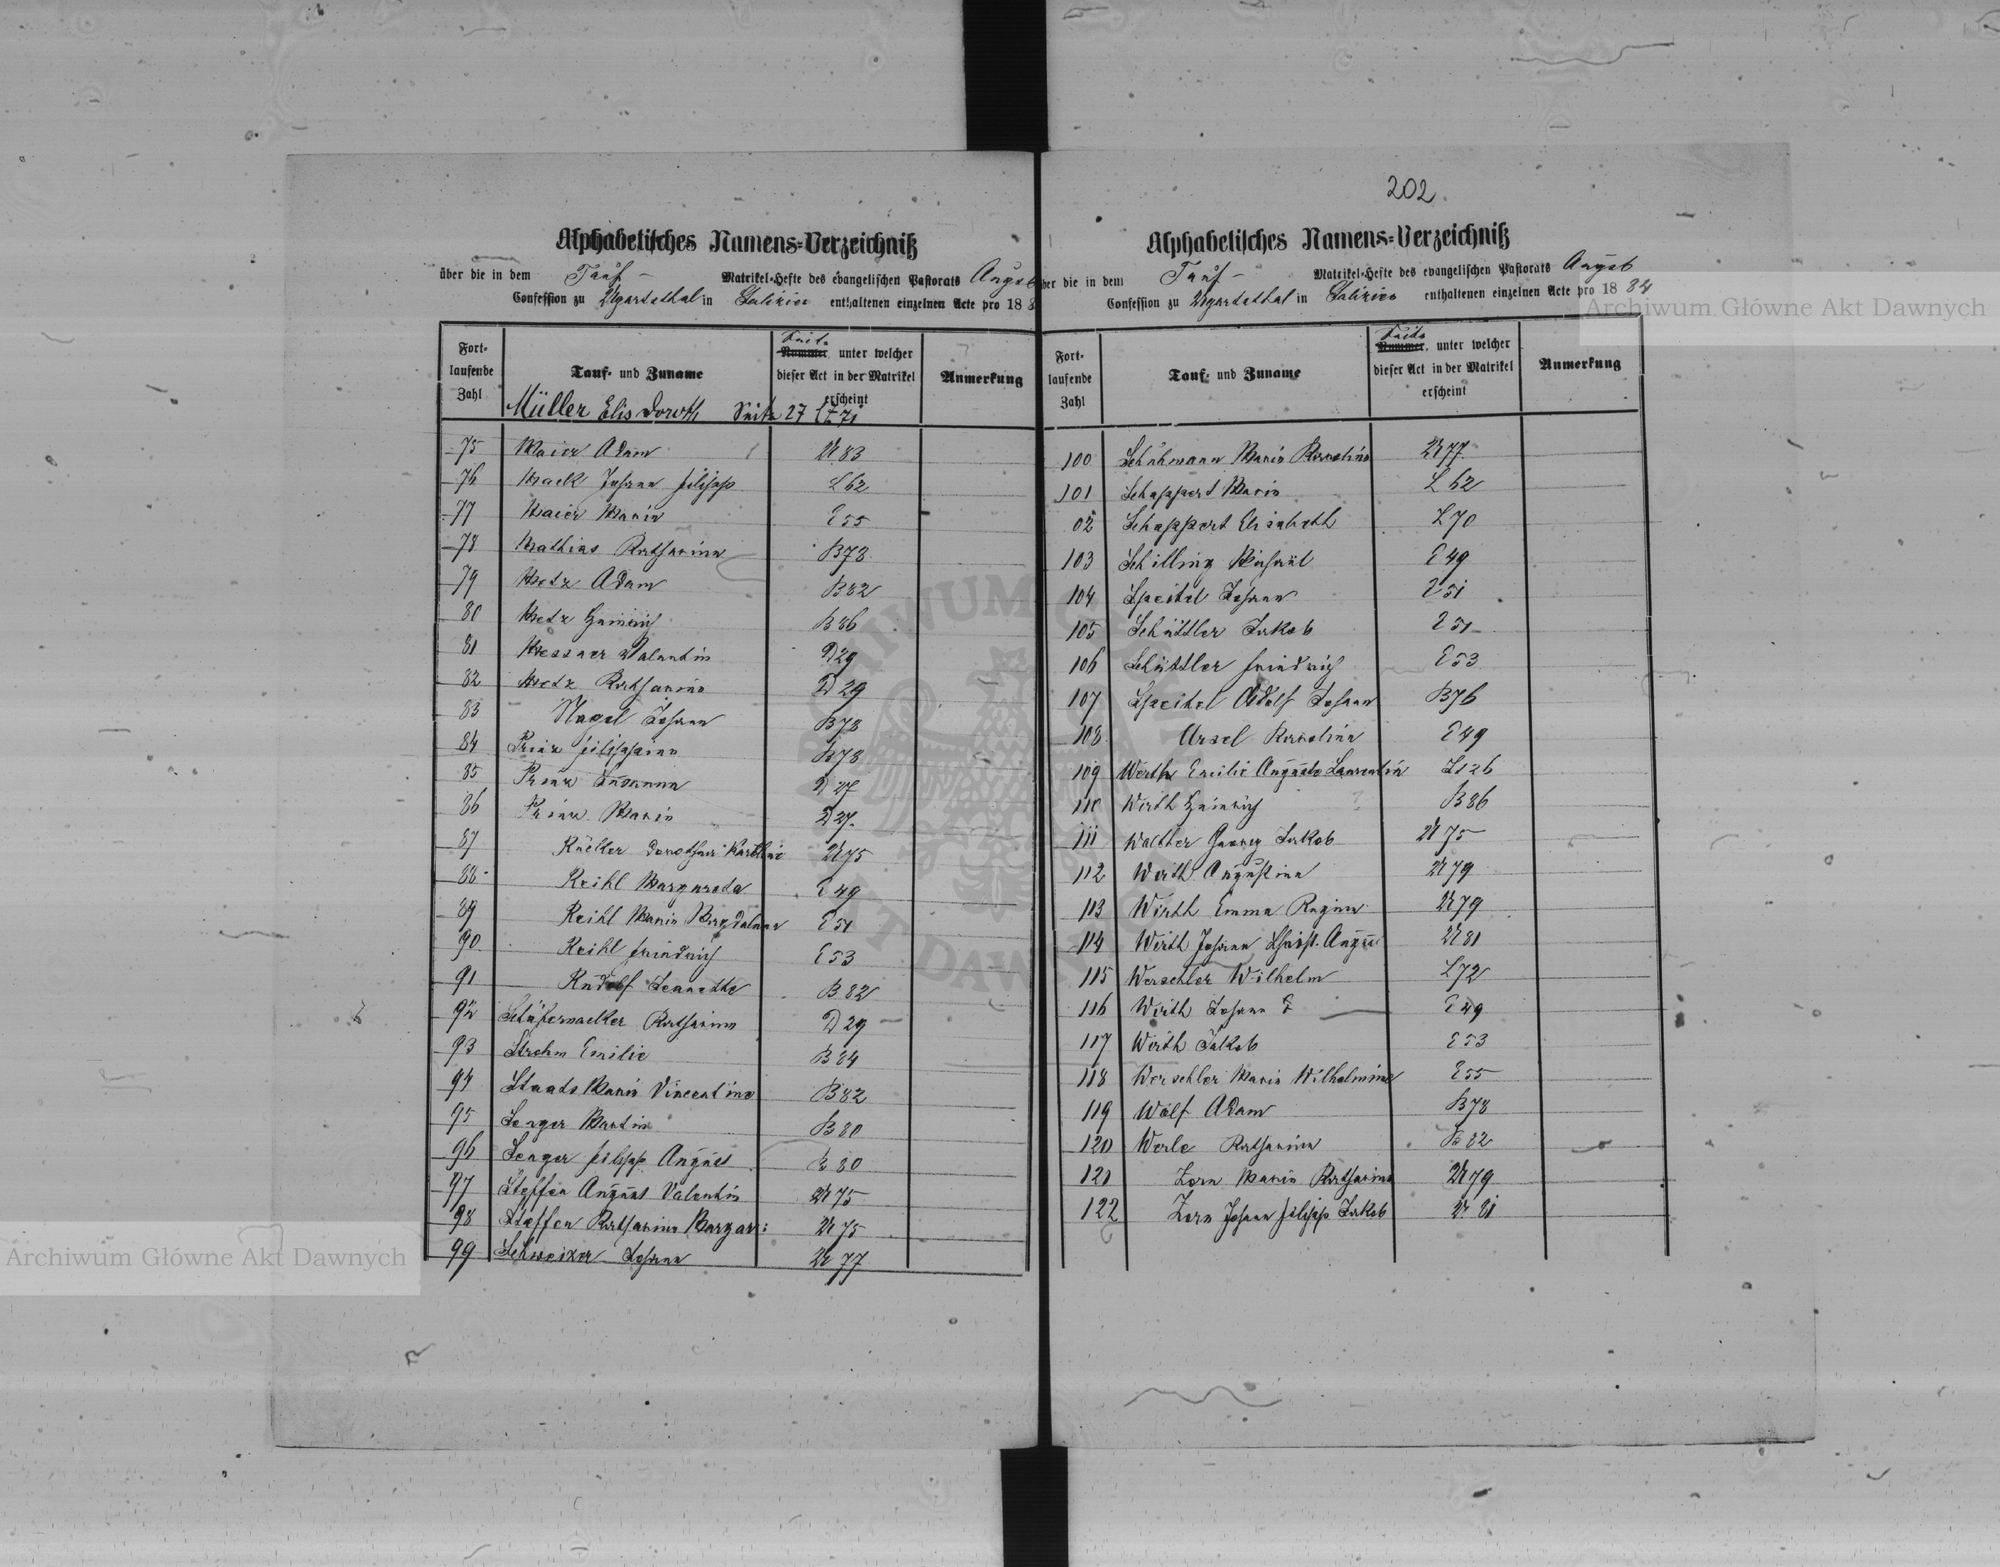 202
Alphabetisches Namens=Verzeichniß
über die in dem Tauf- Matrikel-Hefte des evangelischen Pastorats Augsb
Confession zu Ugartsthal in Galizien enthaltenen einzelnen Acte pro 188
Fort-
laufende
Zahl
Tauf- und Zuname
Seite
Nummer, unter welcher
dieser Act in der Matrikel
erscheint
Anmerkung
Müller Elis Doroth Seite 27
75 Maier Adam U 83
76 Mack Johann Philipp L 62
77 Maier Maria E 55
78 Mathias Katharina B 78
79 Metz Adam B 82
80 Metz Heinrich B 86
81 Messner Valentin D 29
82 Metz Katharina D 29
83 Nagel Johann B 78
84 Prinz Philippina B 78
85 Prinz Susanna D 27
86 Prinz Maria D 27.
87 Dorothea U 75
88 Reihl Margareta E 49
89 Reihl Maria Magdalena E 51
90 Reihl Friedrich E 53
91 Rudolf Jeanette B 82
92 Katharina D 29
93 Strohm Emilie B 84
94 Staads Maria Vincentine B 82
95 Senger Martin B 80
96 Senger Philipp August B 80
97 Steffen August Valentin U 75
98 Steffen Katharina Margar: U 75
99 Schweizer Johann U 77
Alphabetisches Namens=Verzeichniß
über die in dem Tauf- Matrikel-Hefte des evangelischen Pastorats Augsb
Confession zu Ugartsthal in Galizien enthaltenen einzelnen Acte pro 1884
Fort-
laufende
Zahl
Tauf- und Zuname
Seite
Nummer, unter welcher
dieser Act in der Matrikel
erscheint
Anmerkung
100 Schuhmann Maria Karolina U 77
101 Schappert Maria L 62
02 Schappert Elisabeth L 70
103 Schilling Michael E 49
104 Speitel Johann E 51
105 Schüttler Jakob E 51
106 Schüttler Friedrich E 53
107 Speitel Adolf Johann B 76
108 Ursel Karolina E 49
109 Wirth Emilie Auguste Laurentia
110 Wirth Heinrich B 86
111 Walther Georg Jakob U 75
112 Wirth Augustina U 79
113 Wirth Emma Regina U 79
114 Wirth Johann Christ. August U 81
115 Werschler Wilhelm L 72
116 Wirth Johann E 49
117 Wirth Jakob E 53
118 Werschler Maria Wilhelmine E 55
119 Wolf Adam B 78
120 Werle Katharina B 82
121 Zorn Maria Katharina U 79
122 Zorn Johann Philipp Jakob U 81
Archiwum Główne Akt Dawnych
Archiwum Główne Akt Dawnych